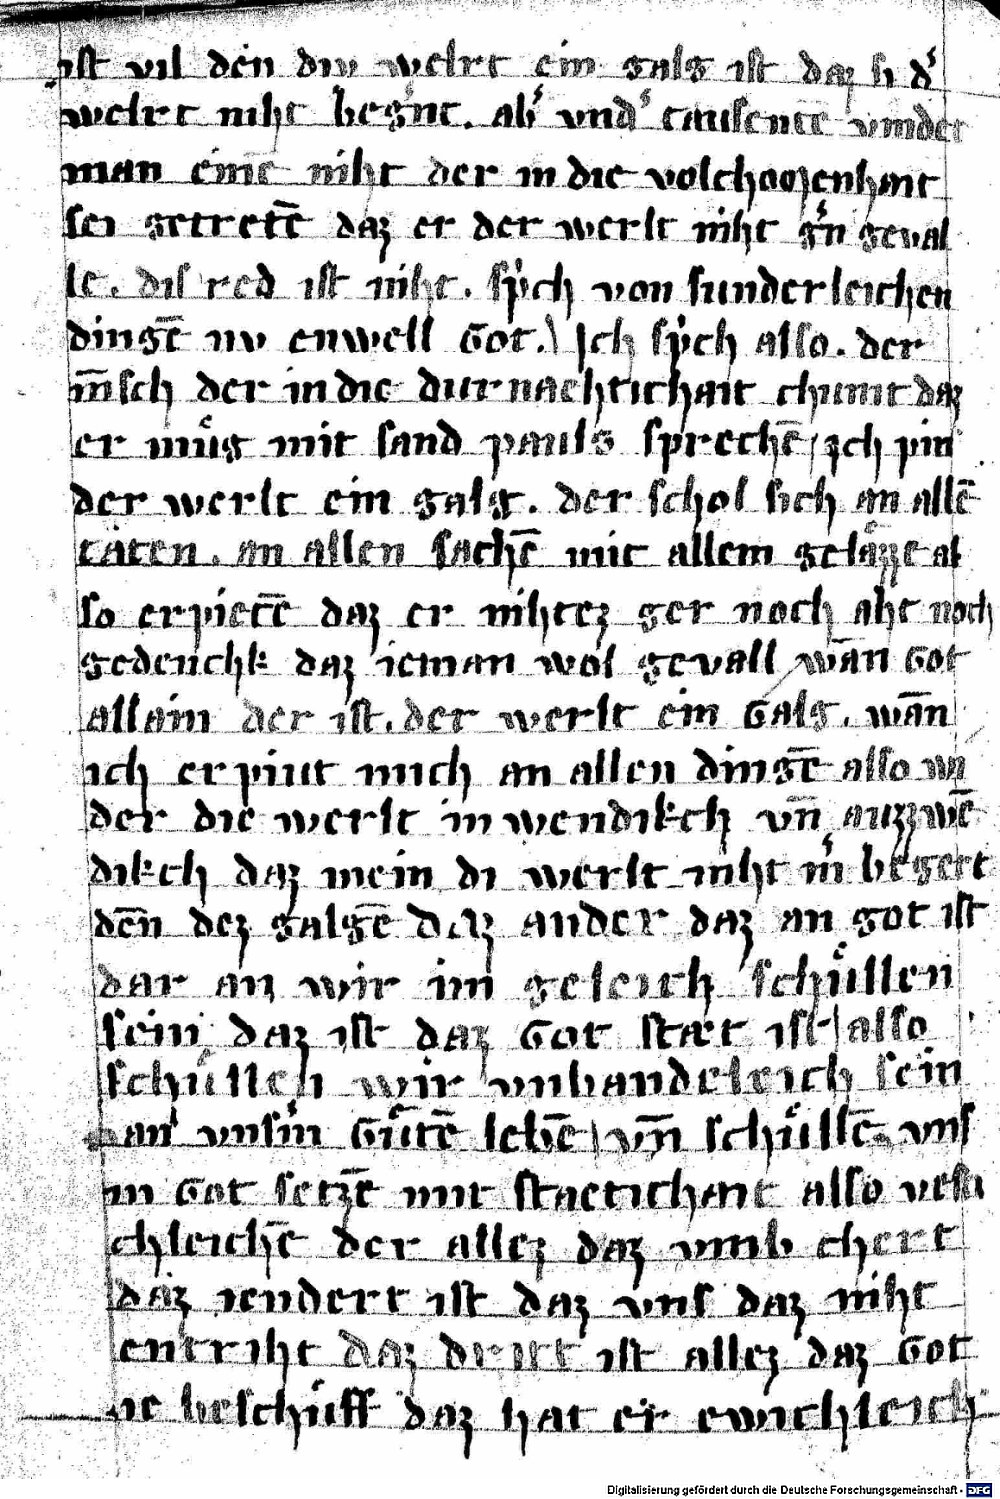 ist vil den diu welrt ein galg ist daz si dˀ
welrt niht begˀnt. abˀ vndˀ tausentē vindet
man einē niht der in die volchomenhait
sei getretē daz er der werlt niht gˀn geval
le. dis red ist niht. spˀch von sunderleichen
dingē nv enwell Got. Jch spˀch also. der
m̄sch der in die durnaehtichait chumt daz
er muͤg mit sand pauls sprechē ich pin
der werlt ein galg. der schol sich an allē
taten. an allen sachē mit allem gelaͤzze al
so erpietē daz er nihtez ger noch aht noch
gedenchk daz ieman wol gevall wān Got
allain der ist. der werlt ein Galg. wān
ich erpiut mich an allen dingē also wi
der die werlt inwendikch vn̄ auzzwē
dikch daz mein di werlt niht mˀ begert
dēn dez galgē Daz ander daz an got ist
dar an wir im geleich schuͤllen
sein daz ist daz Got staet ist also
schuͤllen wir vnbandeleich sein
an vnsˀm Guͤtē lebē vn̄ schuͤllē vns
in Got setzē mit staetichait also vesti
chleichē der allez daz vmb chert
daz iendert ist daz vns daz niht
entriht Daz dritt ist allez daz Got
ie beschuͤff daz hat er ewichleich